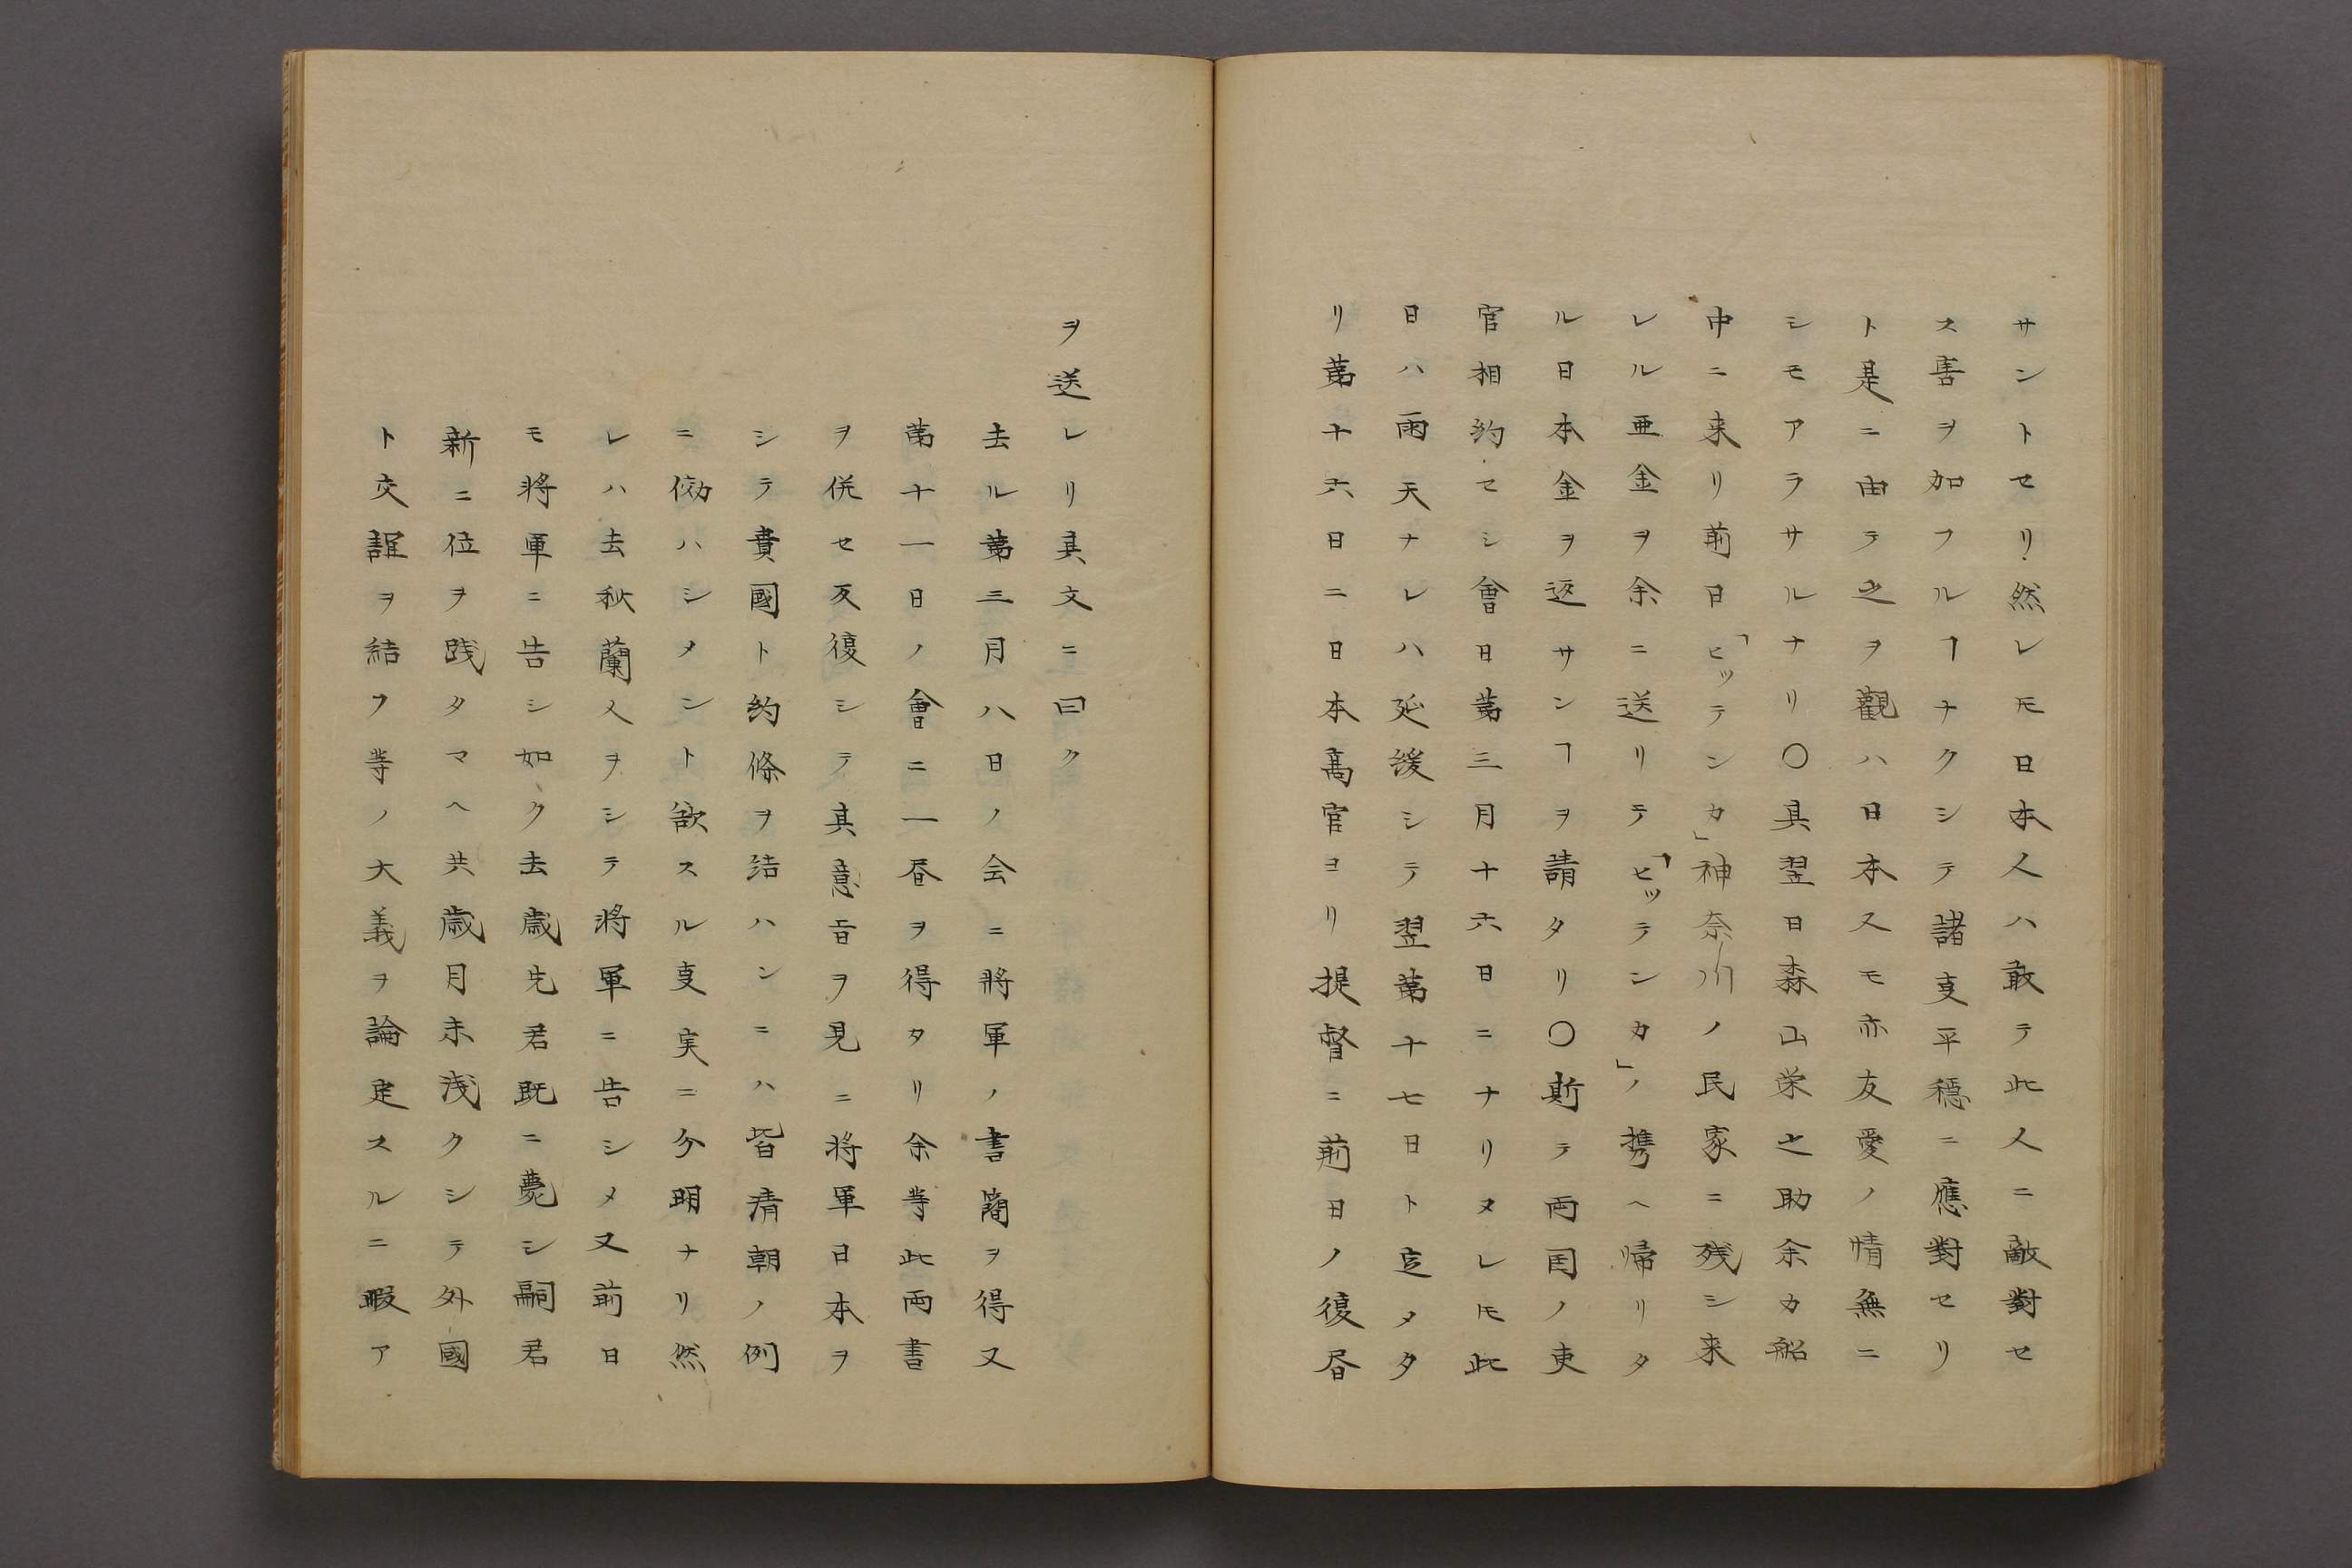 サントセリ然レ𪜈日本人ハ敢テ此人ニ敵對セ
ス害ヲ加フルヿナクシテ諸叓平穏ニ應對セリ
ト是ニ由テ之ヲ觀ハ日本人モ亦友愛ノ情無ニ
シモアラサルナリ〇其翌日森山栄之助余カ舩
中ニ来リ前日「ヒッテンカ」神奈川ノ民家ニ残シ来
レル亜金ヲ余ニ送リテ「ヒッテンカ」ノ携ヘ帰リタ
ル日本金ヲ返サンヿヲ請タリ〇斯テ両国ノ吏
官相約セシ會日第三月十六日ニナリヌレ𪜈此
日ハ雨天ナレハ延緩シテ翌第十七日ト定メタ
リ第十六日ニ日本髙官ヨリ提督ニ前日ノ復昏
ヲ送レリ其文ニ曰ク
去ル第三月八日ノ会ニ將軍ノ書簡ヲ得又
第十一日ノ會ニ一昏ヲ得タリ余等此両書
ヲ併セ反復シテ其意旨ヲ見ニ将軍日本ヲ
シテ貴國ト約條ヲ結ハンニハ皆清朝ノ例
ニ倣ハシメント欲スル叓実ニ分明ナリ然
レハ去秋蘭人ヲシテ將軍ニ告シメ又前日
モ將軍ニ告シ如ク去歳先君既ニ薨シ嗣君
新ニ位ヲ践タマヘ共歳月未淺クシテ外國
ト交誼ヲ結フ等ノ大義ヲ論定スルニ暇ア